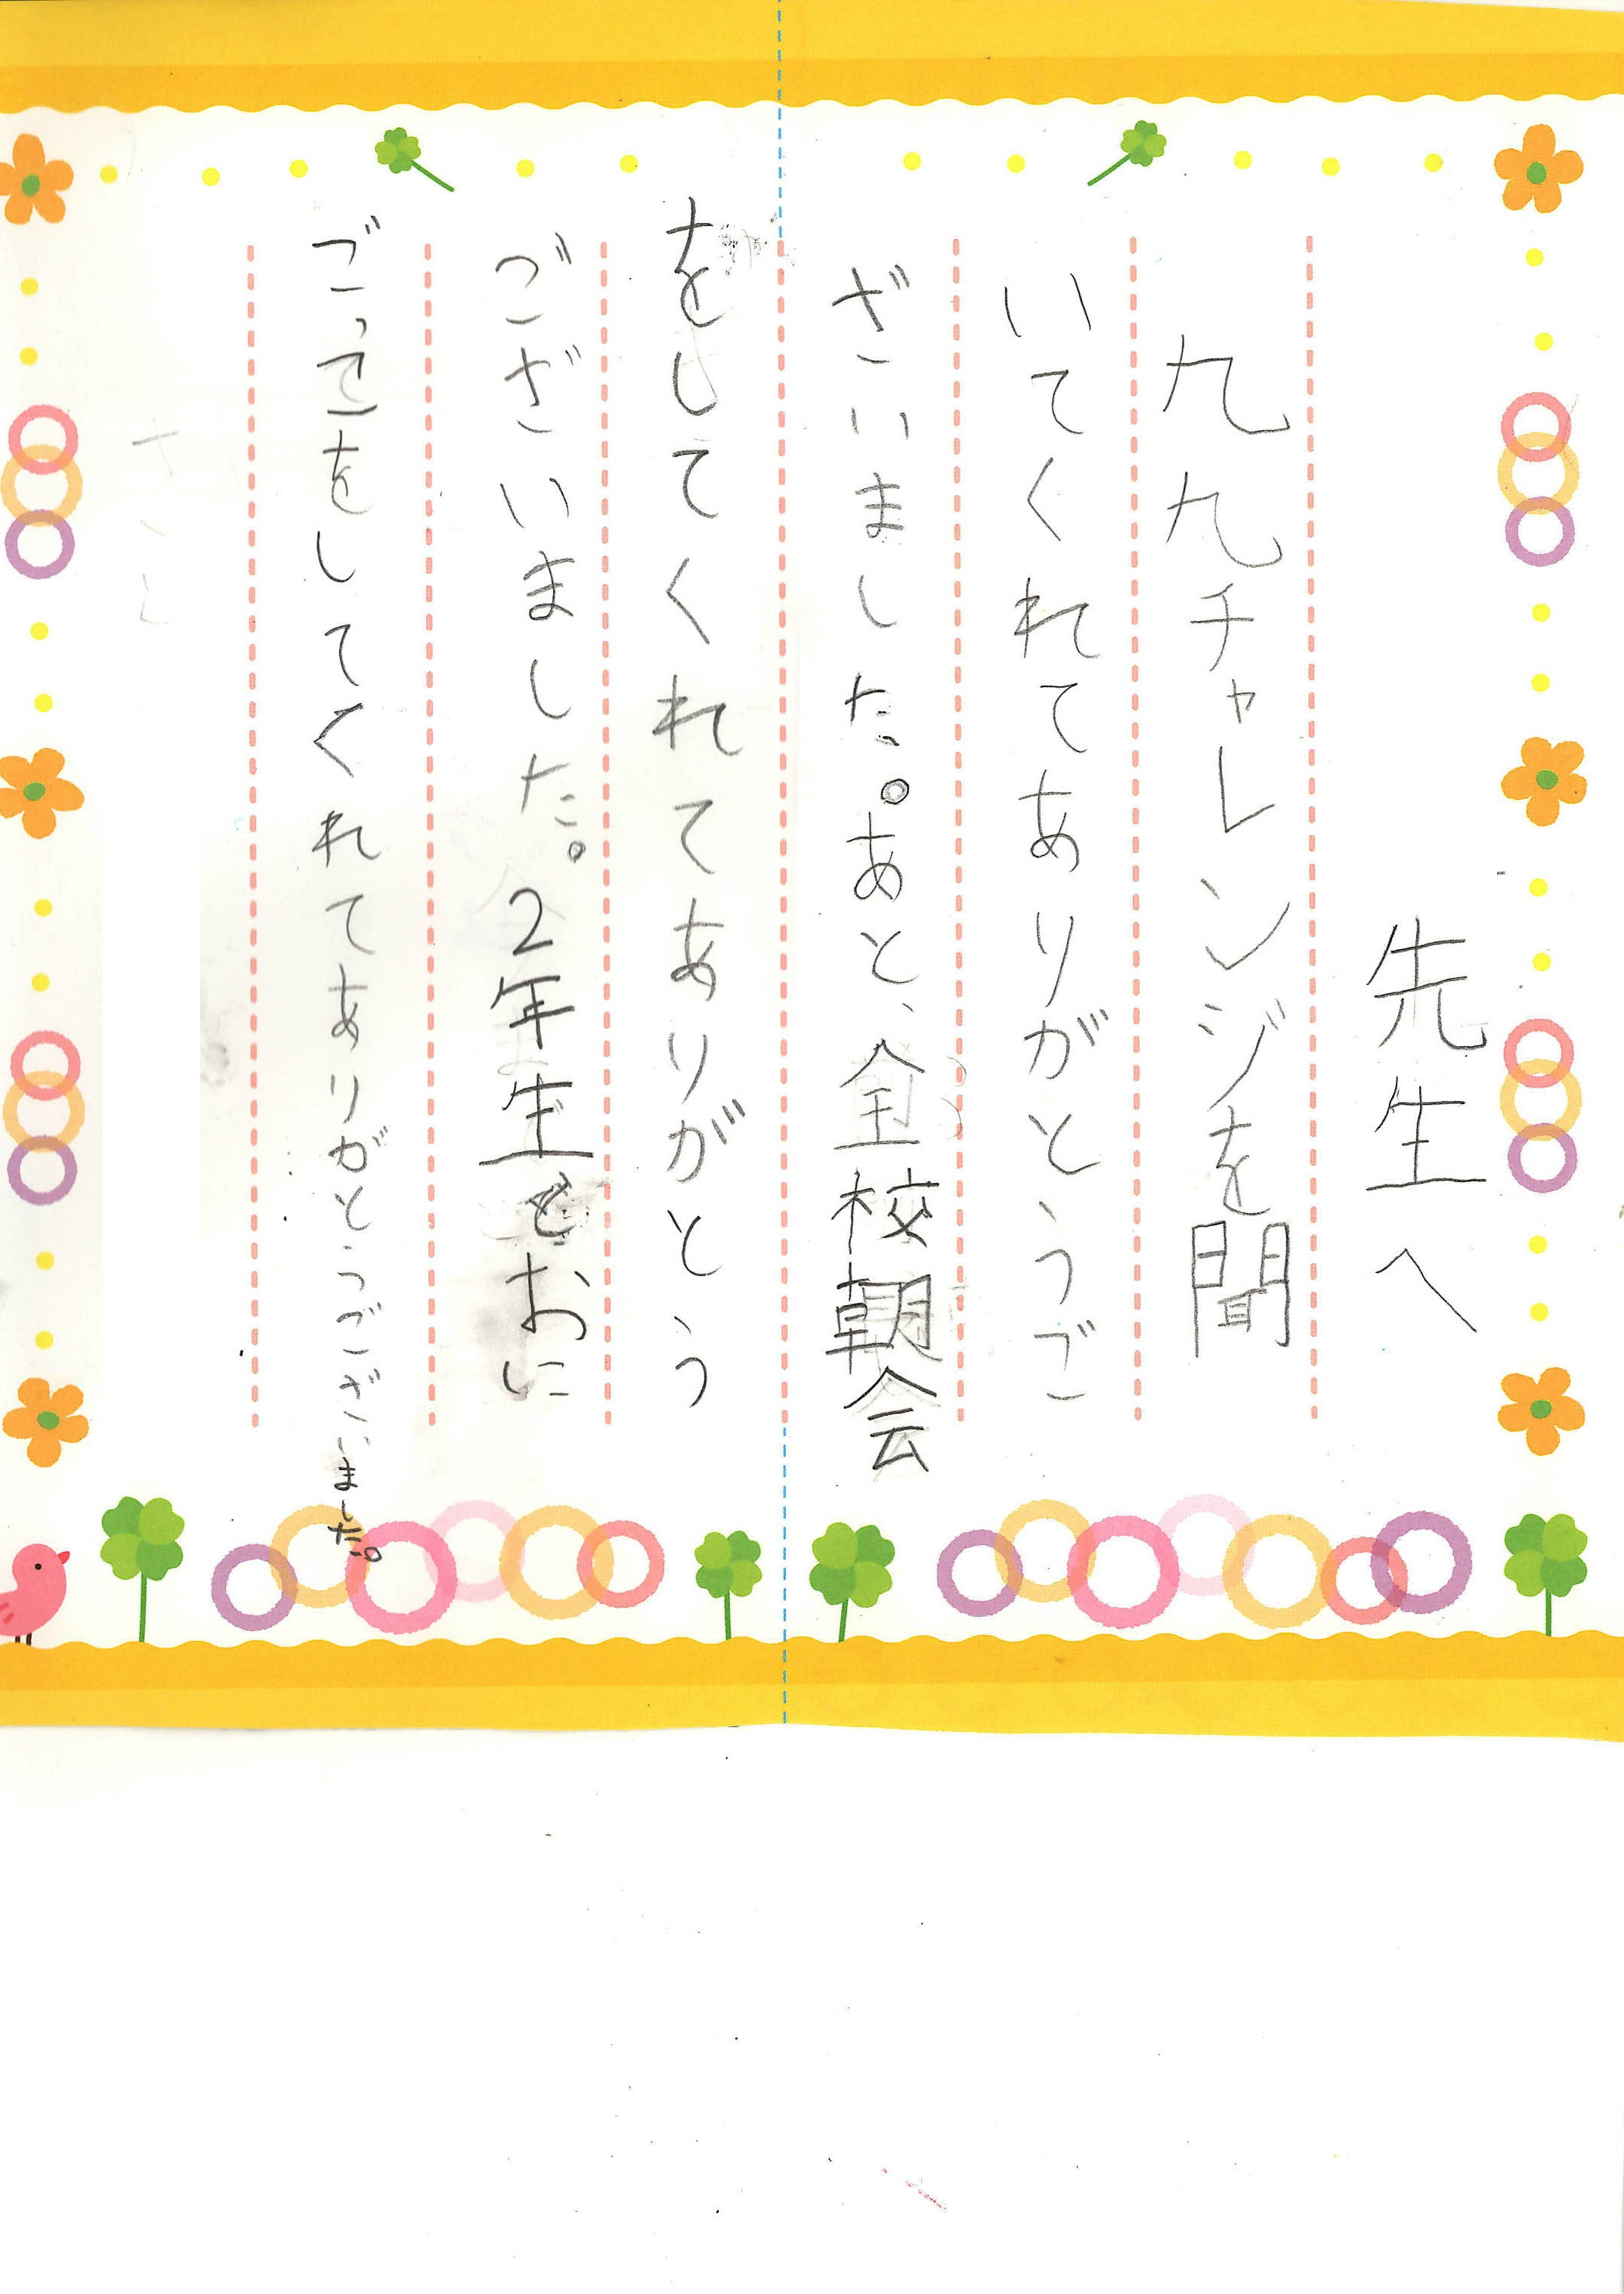 先生へ
九九チャレンジを聞
いてくれてありがとうご
ざいました。あと、全校朝会
をしてくれてありがとう
ございました。2年生とおに
ごってをしてくれてありがとうございました。